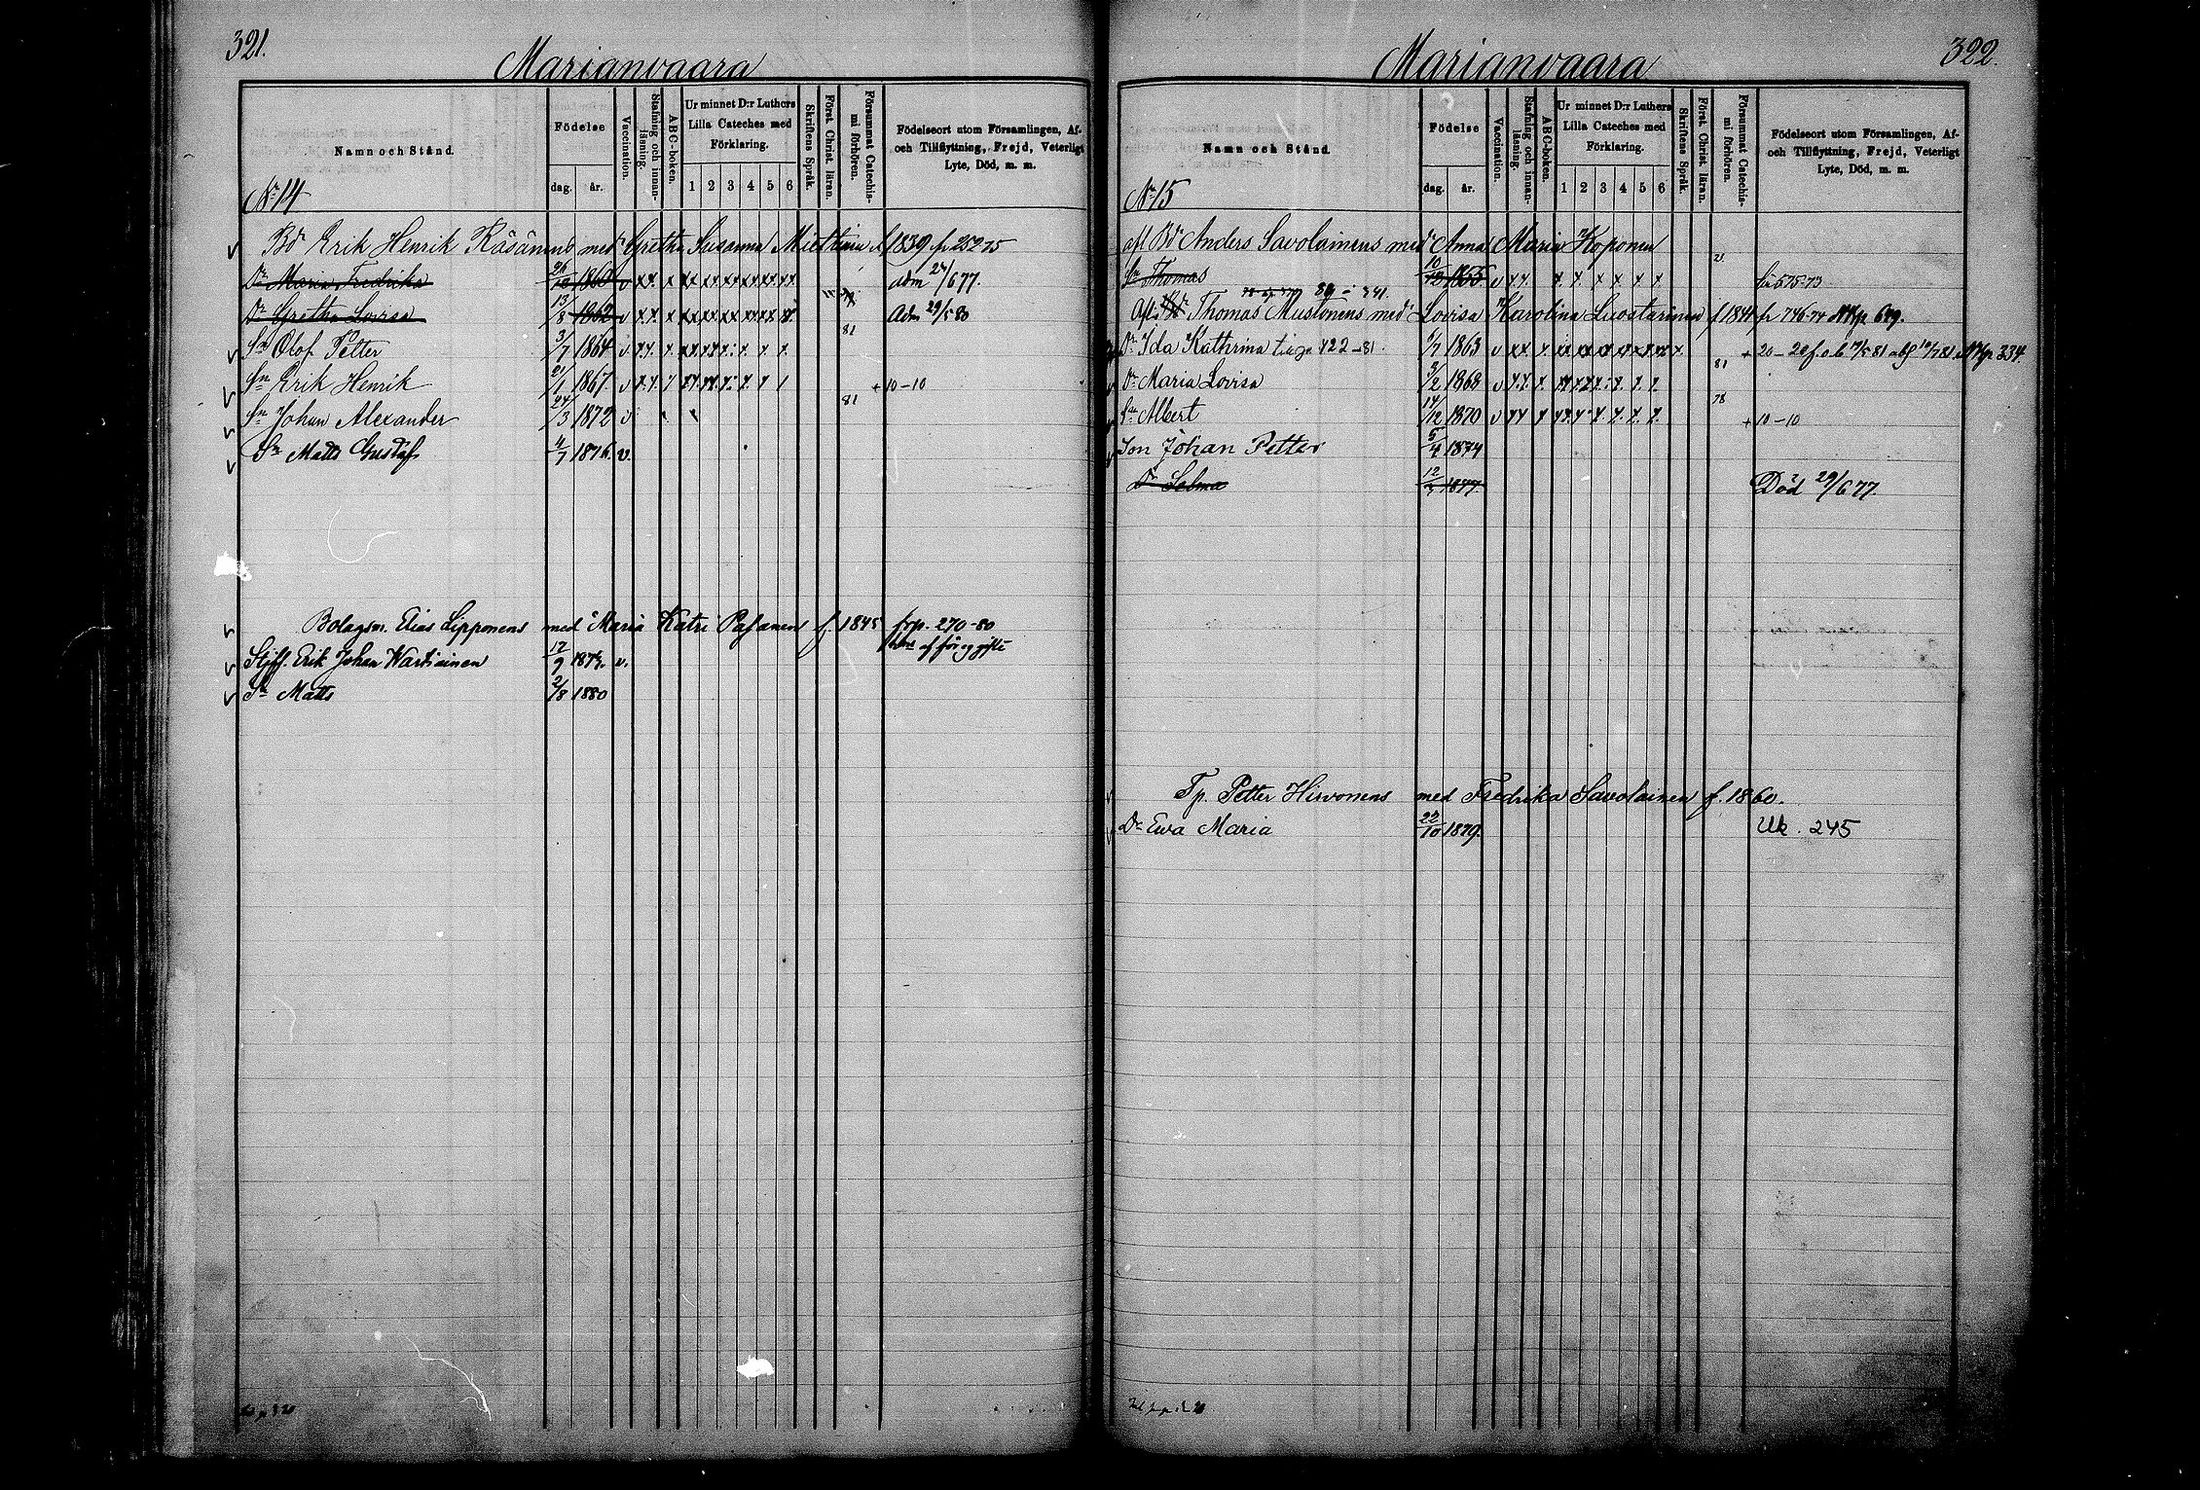 321.
Marianvaara
Namn och Stånd.
Födelse
dag. år.
Vaccination.
Stafning och innanläsning.
ABC-boken.
Ur minnet D:r Luthers Lilla Cateches med Förklaring.
1 2 3 4 5 6
Skriftens Språk.
Först. Christ. läran.
Försummat Catechismi förhören.
Födelseort utom Församlingen, Af- och Tillflyttning, Frejd, Veterligt Lyte, Död, m. m.
No 14
Bd Erik Henrik Räsänens med Gretha Susanna 1839 fr 252-75
Dr Maria Fredrika 1860 v adm 24/6 77.
Dr Gretha Lovisa 13/8 1862 v Adm 29/5 80
Sn Olof Petter 3/7 1864 v 81
Sn Erik Henrik 21/1 1867 v + 10-10
Sn Johan Alexander 24/3 1872 v 81
Sn Matts Gustaf 4/7 1876. v.
Bolagsm. Elias Lipponens med Maria Katri Pasanen f. 1845 frp. 270-80
Styfs. Erik Johan Wartiainen 12/9 v.
Sn Matts 2/8 1880
322.
Marianvaara
Namn och Stånd.
Födelse
dag. år.
Vaccination.
Stafning och innanläsning.
ABC-boken.
Ur minnet D:r Luthers Lilla Cateches med Förklaring.
1 2 3 4 5 6
Skriftens Språk.
Först. Christ. läran.
Försummat Catechismi förhören.
Födelseort utom Församlingen, Af- och Tillflyttning, Frejd, Veterligt Lyte, Död, m. m.
No 15
afl Bd Anders Savolainens med Anna Maria Koponen
Sn Thomas 1855 v 575-73
Afl. Bd Thomas Mustonens med Lovisa Karolina Luostarinen f 1841 fr 746-74
Dr Ida Kathrina 422-81. 6/7 1863 v + 20-20 334.
Dr Maria Lovisa 3/2 1868 v 81
Sn Albert 14/12 1870 v 78 + 10-10
Son Johan Petter 5/4 1874
Dr Selma 12/3 1877. Död 29/6 77.
Tp. Petter Hirvonens med Fredrika Savolainen f. 1860.
Dr Ewa Maria 22/10 1879. Uk. 245